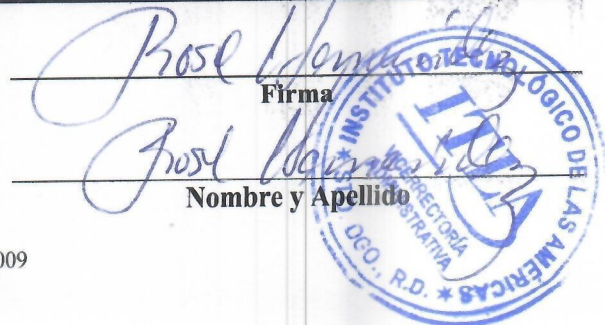 Rose
Firma
Rose
Nombre y Apellido
009
INSTITUTO TECNOLÓGICO DE LAS AMÉRICAS
ITLA
VICERRECTORÍA
ADMINISTRATIVA
DGO., R.D.